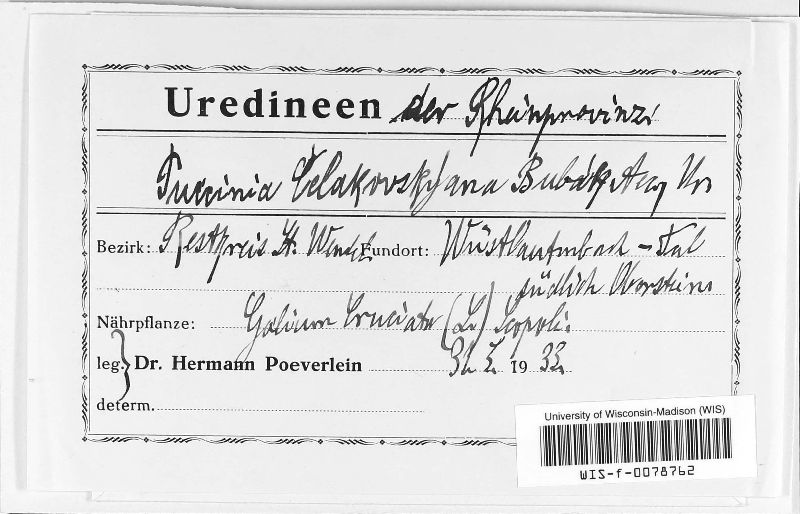 Uredineen der Rheinprovinz
Puccinia Čelakovskyana Bubák
Bezirk: Restkreis St. Wendel Fundort: Wüstlautenbach-Tal
südlich Oberstein
Nährpflanze: Galium Cruciata (L.) Scopoli.
leg. Dr. Hermann Poeverlein 31. 7. 1933.
determ.
University of Wisconsin-Madison (WIS)
WIS-f-0078762